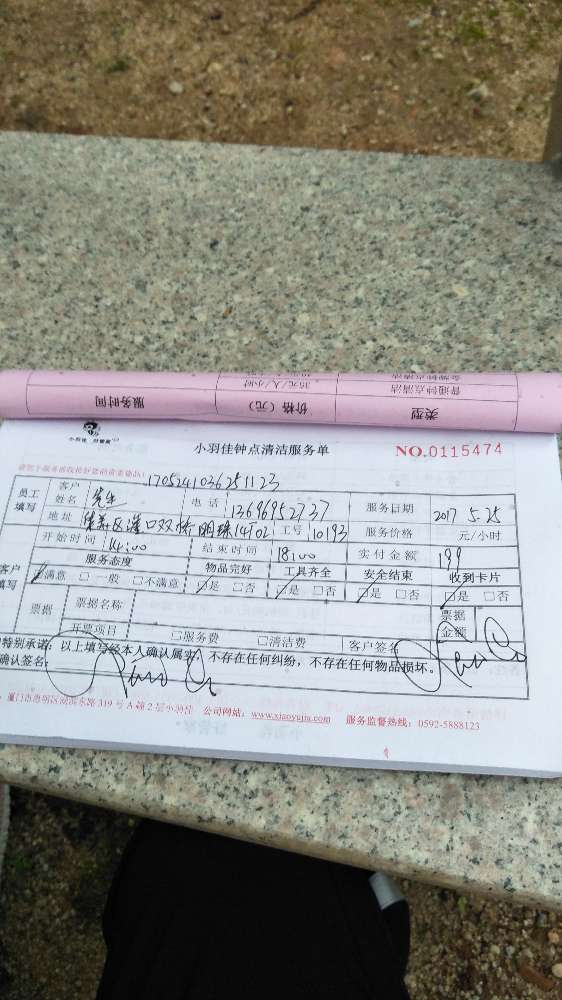 普通钟点清洁 35元/人/小时
类型 价格（元） 服务时间
小羽佳钟点清洁服务单
NO.0115474
1705241036251123
员工填写
客户姓名 先生 电话 13696952737 服务日期 2017 5.25
地址 集美区灌口双桥明珠14T02 工号 10193 服务价格 元/小时
开始时间 14:00 结束时间 18:00 实付金额 199
客户填写
服务态度 物品完好 工具齐全 安全结束 收到卡片
☑满意 □一般 □不满意 ☑是 □否 ☑是 □否 ☑是 □否 ☑是 □否
票据 票据名称 票据金额
开票项目 □服务费 □清洁费 客户签名
特别承诺：以上填写经本人确认属实，不存在任何纠纷，不存在任何物品损坏。
确认签名：
319号A幢2层小羽佳 公司网站：www.xiaoyujia.com 服务监督热线：0592-5888123